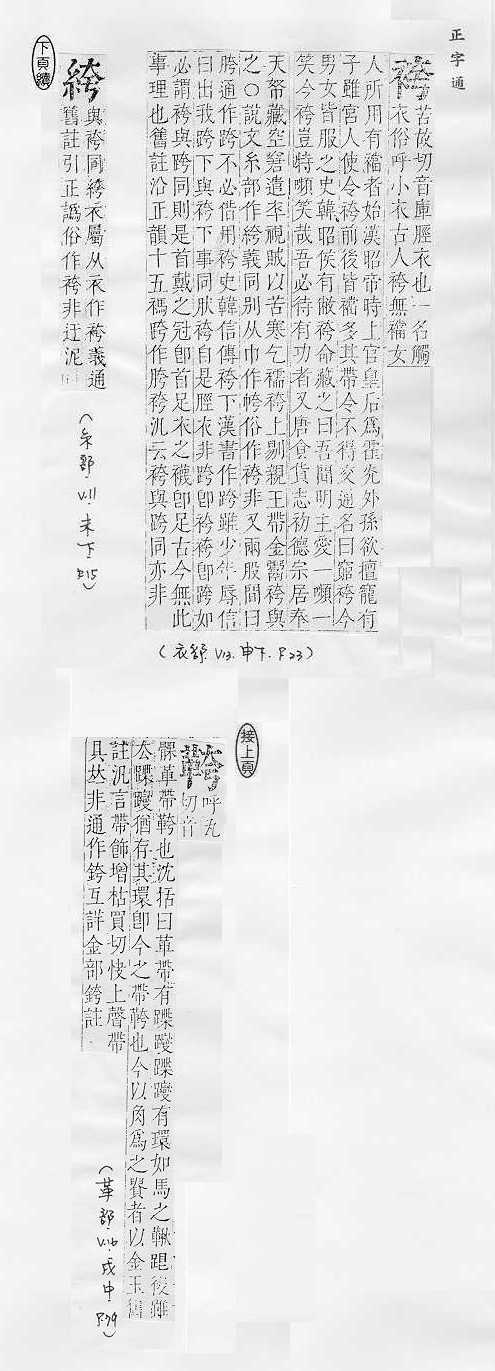 正字通
袴
苦故切音庫脛衣也一名𧣪
衣俗呼小衣古人袴無襠女
人所用有襠者始漢昭帝時上官皇后爲霍光外孫欲擅寵有
子雖宮人使令袴前後皆襠多其帶令不得交通名曰窮袴今
男女皆服之史韓昭侯有敝袴命藏之曰吾聞明主愛一嚬一
笑今袴豈特嚬笑哉吾必待有功者又唐食貨志初德宗居奉
天帑藏空窘遣卒視賊以苦寒乞襦袴上剔親王帶金鬻袴與
之○說文糸部作絝義同別从巾作㡁俗作袴非又兩股間曰
胯通作跨不必借用袴史韓信傳袴下漢書作跨雖少年辱信
曰出我跨下與袴下事同肰袴自是脛衣非跨卽袴袴卽跨如
必謂袴與跨同則是首戴之冠卽首足衣之襪卽足古今無此
事理也舊註沿正韻十五禡跨作胯袴汎云袴與跨同亦非
(衣部.V13.申下.P.23)
絝
與袴同絝衣屬从衣作袴義通
舊註引正譌俗作袴非迂泥
(糸部.V11.未下.P.15)
下頁續
接上頁
鞶
呼九
切音
髁革帶鞶也沈括曰革帶有蹀躞蹀躞有環如馬之鞦䟫後雖
厺蹀躞猶存其環卽今之帶鞶也今以角爲之貴者以金玉舊
註汎言帶飾增枯買切快上聲帶
具𠀤非通作銙互詳金部銙註
(革部.V16.戌中.P.79)